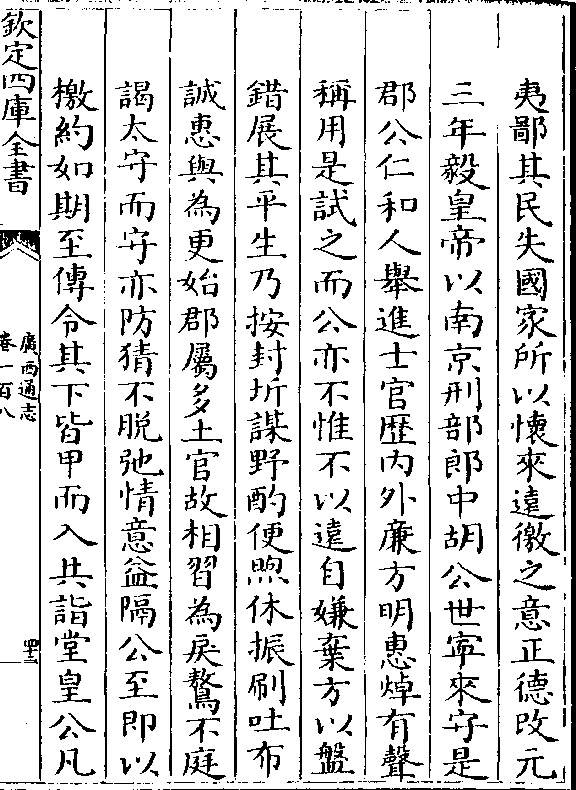 夷鄙其民失國家所以懷來遠徼之意正德改元
三年毅皇帝以南京刑部郎中胡公世寧來守是
郡公仁和人舉進士官歴内外㢘方明惠焯有聲
稱用是試之而公亦不惟不以遠自嫌棄方以盤
錯展其平生乃按封圻謀野酌便煦休振刷吐布
誠惠與為更始郡屬多土官故相習為戾驁不庭
謁太守而守亦防猜不脱弛情意益隔公至即以
檄約如期至傳令其下皆甲而入共詣堂皇公凡
欽定四庫全書
廣西通志
卷一百八